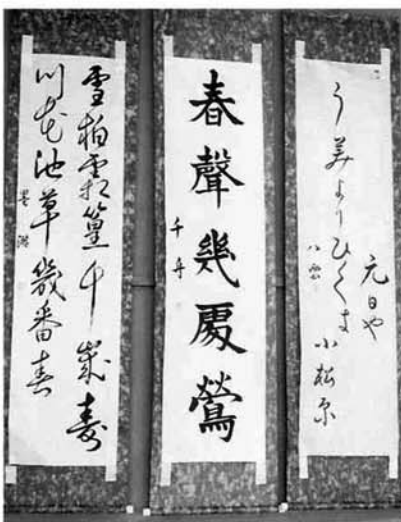 元日や
う美よりひくき
小松原
八雲
春聲幾處鶯
千舟
雪柏霜篁千歳寿
川花池草幾番春